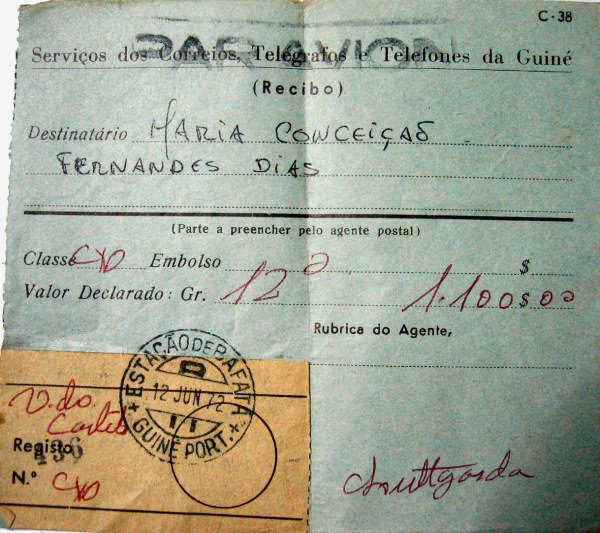 C-38
PAR AVION
Serviços dos Correios, Telégrafos e Telefones da Guiné
(Recibo)
Destinatário MARIA CONCEIÇÃO
FERNANDES DIAS
(Parte a preencher pelo agente postal)
Classe Embolso $
Valor Declarado: Gr. 12 1.100$00
Rubrica do Agente,
ESTAÇÃO DE BAFATÁ
12 JUN 72
GUINÉ PORT.
V. do
Registo
N.º